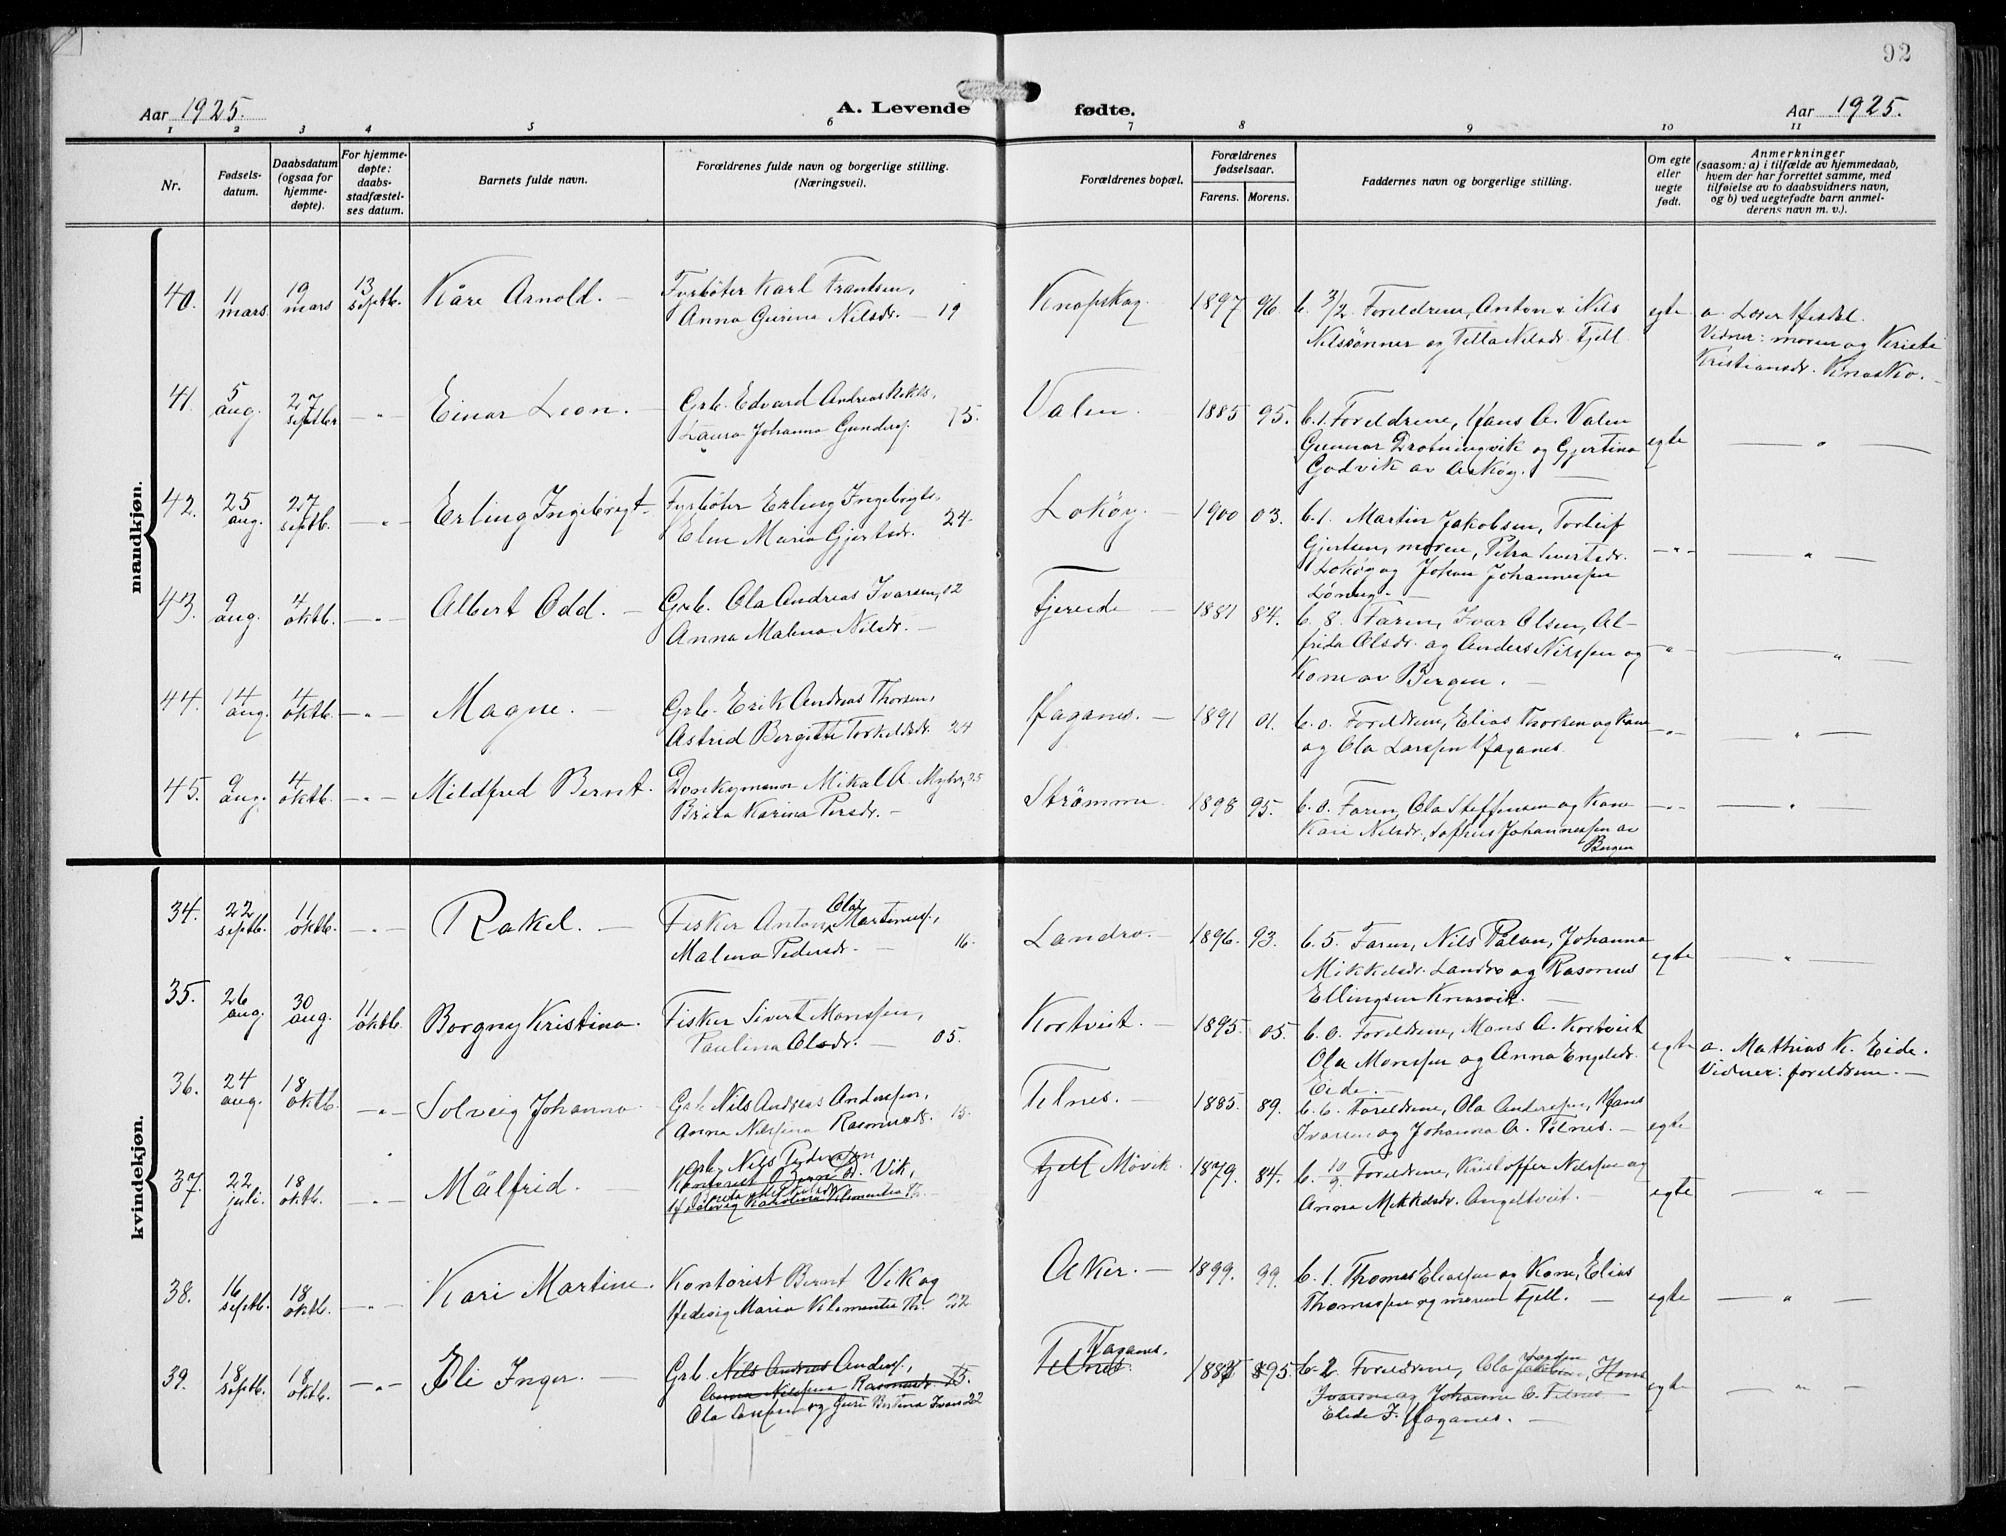 92
Aar 1925.
A. Levende fødte.
Aar 1925.
1 2 3 4 5 6 7 8 9 10 11
Nr.
Fødsels-
datum.
Daabsdatum
(ogsaa for
hjemme-
døpte).
For hjemme-
døpte:
daabs-
stadfæstel-
ses datum.
Barnets fulde navn.
Forældrenes fulde navn og borgerlige stilling.
(Næringsvei).
Forældrenes bopæl.
Forældrenes
fødselsaar.
Farens. Morens.
Faddernes navn og borgerlige stilling.
Om egte
eller
uegte
født.
Anmerkninger
(saasom: a) i tilfælde av hjemmedaab,
hvem der har forrettet samme, med
tilføielse av to daabsvidners navn,
og b) ved uegtefødte barn anmel-
derens navn m. v.).
mandkjøn.
40. 11 mars 19 mars 13 septb. Kåre Arnold. —
Fyrbøter Karl Frantsen,
Anna Gurina Nilsdr. — 19
Knapskog. 1897 96
b. 3/2 Foreldrene, Anton & Nils
Nilssønner og Tilla Nilsdr. Fjell
egte
a. Lærer
Vidner: moren og
Kristiansdr.
41. 5 aug. 27 septbr — " — Einar Leon. —
Grb. Edvard Andreas
Laura Johanna Gunders. 15.
Valen. 1885 95.
b. 1. Foreldrene, Hans A. Valen
Gunnar Drotningvik og Gjertina
Godvik av Askøy. —
egte — " —
42. 25 aug. 27 septb. — " — Erling Ingebrigt —
Fyrbøter Erling Ingebrigts.
Elen Maria Gjertsdr. 24.
Lokøy — 1900 03.
b. 1. Martin Jakobsen, Torleif
Gjertsen, moren, Petra Sivertsdr.
Lokøy og Johan Johannessen
Løning. —
— " — — " —
43. 9 aug. 4 oktb. — " — Albert Odd. —
Grb. Ola Andreas Ivarsen, 02
Anna Malena Nilsdr. —
Fjereide — 1881 84.
b. 8. Faren, Ivar Olsen, Al-
frida Olsdr. og Anders Nilssen og
Kone av Bergen. —
— " — — " —
44. 14 aug. 4 oktb. — " — Magne. —
Grb. Erik Andreas Thorsen,
Astrid Bergitte Torkeldsdr. 24
Haganes. — 1891 01.
b. 0. Foreldrene, Elias Thorsen og Kone
og Ola Larssen Haganes.
— " — — " —
45. 9 aug. 4 oktb. — " — Mildfred Bernt.
Donkeymann Mikal A. Myhre, 25
Brita Karina Persdr. —
Strømme 1898 95.
b. 0. Faren, Ola Steffensen og Kone
Kari Nilsdr, Sofus Johannessen av
Bergen
— " — — " —
kvindekjøn.
34. 22 septb. 11 oktb. — " — Rakel. —
Ola
Fisker Anton Martinus.,
Malena Pedersdr. — 16.
Landro. — 1896. 93.
b. 5. Faren, Nils Pålsen, Johanna
Mikkelsdr. Landro og Rasmus
Ellingsen Knarvik. —
egte — " —
35. 26 aug. 30 aug. 11 oktb. Borgny Kristina.
Fisker Sivert Monssen,
Paulina Olsdr. — 05.
Kortveit. — 1895. 05.
b. 0. Foreldrene, Mons A. Kortveit
Ola Monssen og Anna Engelsdr.
Eide. —
egte
a. Mathias K. Eide.
Vidner: foreldrene. —
36. 24 aug. 18 oktb. — " — Solveig Johanna
Grb Nils Andreas Anderssen,
Anna Nilssina Rasmusdr. 15.
Telnes. — 1885. 89.
b. 6. Foreldrene, Ola Anderssen, Hans
Ivarsen og Johanna A. Telnes. —
egte
37. 22 juli. 18 oktb. — " — Målfrid. —
Grb, Nils Pedersen
Kontorist Bernt A. Vik,
Hedevig Karolina Klementia Th. —
Fjell Møvik. 1879. 84.
b. 10/9. Foreldrene, Kristoffer Nilssen og
Anna Mikkelsdr. Angeltveit.
egte — " —
38. 16 septb. 18 oktb. — " — Kari Martine.
Kontorist Bernt Vik og
Hedevig Maria Klementia Th. 22
Aker. — 1899. 99.
b. 1. Thomas Eliassen og Kone, Elias
Thomassen og moren Fjell. —
egte — " —
39. 18 septb. 18 oktb. — " — Eli Inger. —
Grb Nils Andreas Anders.,
Anna Nilssina Rasmusdr. 15.
Ola Larssen og Guri Bertina Ivars 22
Haganes.
Telnes. 188 95
b. 2 Foreldrene, Ola Hans
Ivarsen og Johanna A. Telnes
Haganes. —
egte — " —